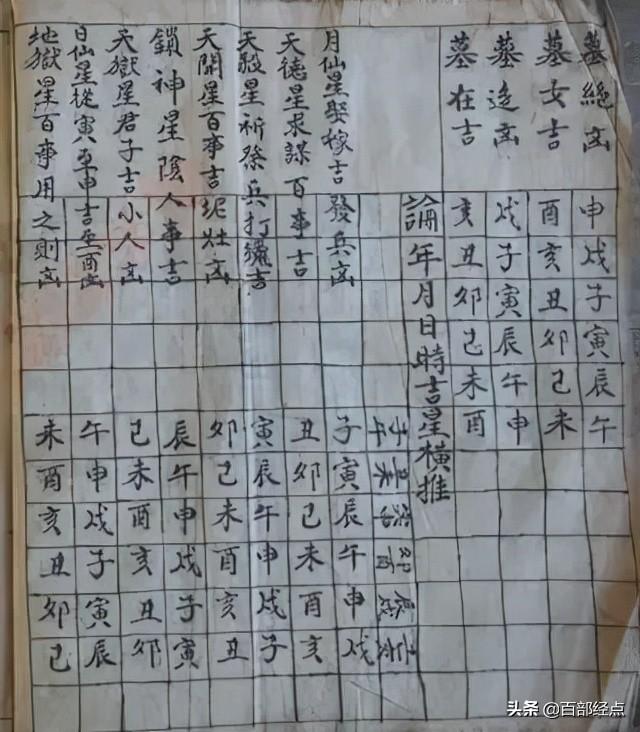 墓絕凶申戌子寅辰午
墓女吉酉亥丑卯巳未
墓迄凶戌子寅辰午申
墓在吉亥丑卯巳未酉
論年月日時吉星橫推
子午丑未寅申卯酉辰戌巳亥
月仙星娶嫁吉發兵凶子寅辰午申戌
天德星求謀百事吉丑卯巳未酉亥
天殺星祈祭兵打獵吉寅辰午申戌子
天開星百事吉泥灶凶卯巳未酉亥丑
鎖神星陰人事吉辰午申戌子寅
天獄星君子吉小人凶巳未酉亥丑卯
日仙星從寅至申吉至酉凶午申戌子寅辰
地獄星百事用之則凶未酉亥丑卯巳
头条 @百部经点